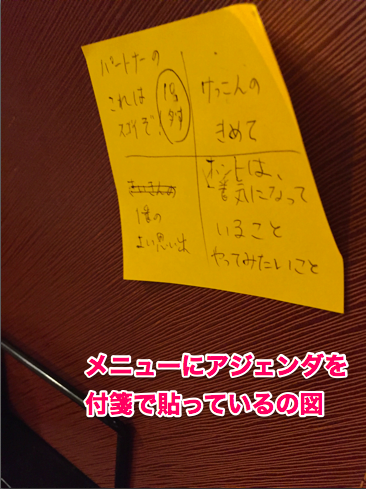 パートナーの
これは
スゴイぞ!
けっこんの
きめて
1番の
よい思い出
ホントは、
1番気になって
いること
やってみたいこと
メニューにアジェンダを
付箋で貼っているの図